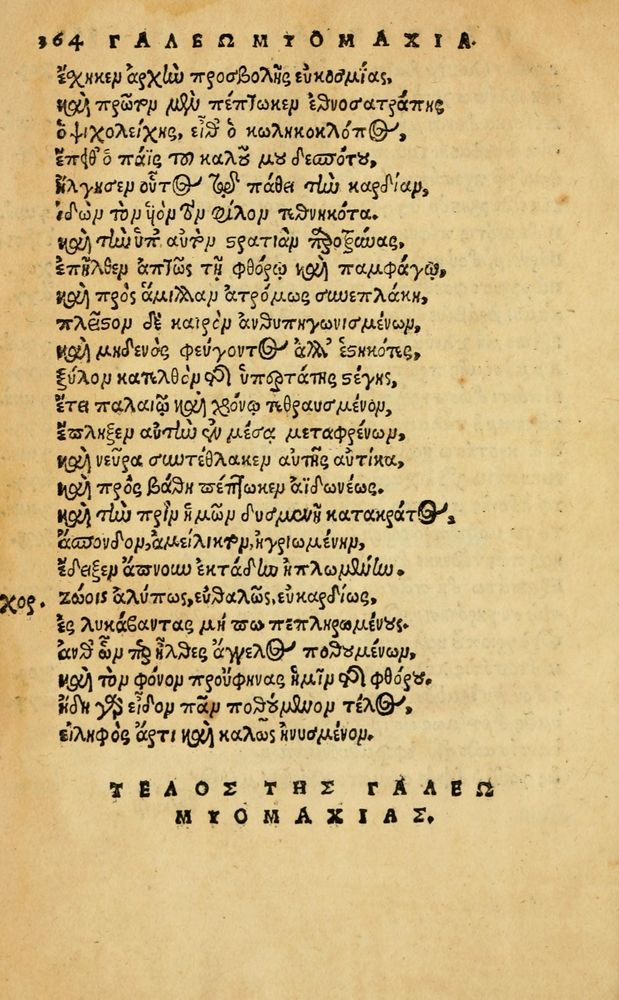 364 ΓΑΛΕΩΜΥΟΜΑΧΙΑ.
ἔσχηκεν ἀρχὴν προσβολῆς εὐκοσμίας,
καὶ πρῶτον μὲν πέπτωκεν ἐθνοσατράπης
ὁ ψιχολείχης, εἶθ' ὁ κωληκοκλόπος,
ἔπειθ' ὁ παῖς τοῦ καλοῦ μου δεσπότου,
ἤλγησεν οὗτος τῷ πάθει τὴν καρδίαν,
ἰδὼν τὸν υἱὸν τὸν φίλον τεθνηκότα.
καὶ τὴν ὑπ' αὐτὸν στρατιὰν προξάνας,
ἐπῆλθεν ἁπτῶς τῇ φθόρῳ καὶ παμφάγῳ,
καὶ πρὸς ἅμιλλαν ἀτρόμως συνεπλάκη,
πλεῖστον δὲ καιρὸν ἀνθυπηγωνισμένων,
καὶ μηδενὸς φεύγοντος ἀλλ' ἑστηκότες,
ξύλον κατελθὸν ἐξ ὑπερτάτης στέγης,
ἔτει παλαιῷ καὶ χρόνῳ τεθραυσμένον,
ἔπληξεν αὐτὴν ἐν μέσα μεταφρένων,
καὶ νεῦρα συντέθλακεν αὐτῆς αὐτίκα,
καὶ πρὸς βάθη πέπτωκεν ἀϊδωνέως.
καὶ τὴν πρὶν ἡμῶν δυσμενῆ κατακράτος,
ἄσπονδον, ἀμείλικτον, ἠγριωμένην,
ἔδειξεν ἄπνουν ἐκτάδην ἡπλωμένην.
χορ. ζώοις ἀλύπως, εὐθαλῶς, εὐκαρδίως,
ἐς λυκάβαντας μή πω πεπληρωμένους.
ἀνθ' ὧν περ ἦλθες ἄγγελος ποθουμένων,
καὶ τὸν φόνον προὔφηνας ἡμῖν ἐξ φθόρου.
ἤδη γὰρ εἶδον πᾶν ποθούμενον τέλος,
εἰληφὸς ἄρτι καὶ καλῶς ἠνυσμένον.
ΤΕΛΟΣ ΤΗΣ ΓΑΛΕΩ
ΜΥΟΜΑΧΙΑΣ.